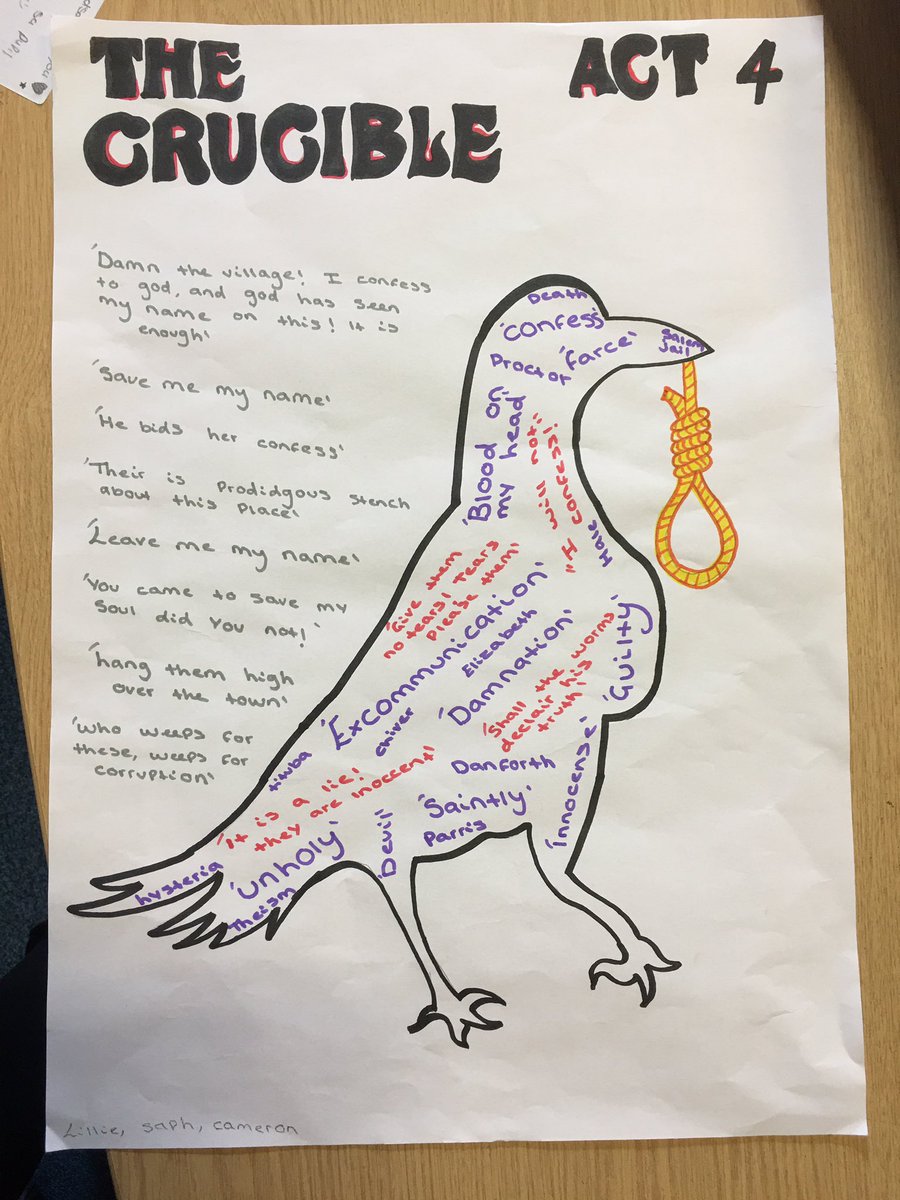 THE
CRUCIBLE
ACT 4
'Damn the village! I confess
to god, and god has seen
my name on this! It is
enough'
'Save me my name'
'He bids her confess'
'Their is prodidgous stench
about this place'
'Leave me my name'
'You came to save my
soul did you not!'
'hang them high
over the town'
'who weeps for
these, weeps for
corruption'
Death
'confess'
Proctor
'farce'
Salem
Jail
'Blood on
my head'
"I will not
confess!
Hale
'Give them
no tears! Tears
please them!'
'Excommunication'
Elizabeth
'Damnation'
'Guilty'
'Shall the worms
declair his
truth'
chiver
tituba
Danforth
'It is a lie!
they are inoccent!
'Saintly'
Parris
'Innocense'
Devil
hysteria
'unholy'
Theism
Lillie, saph, cameron